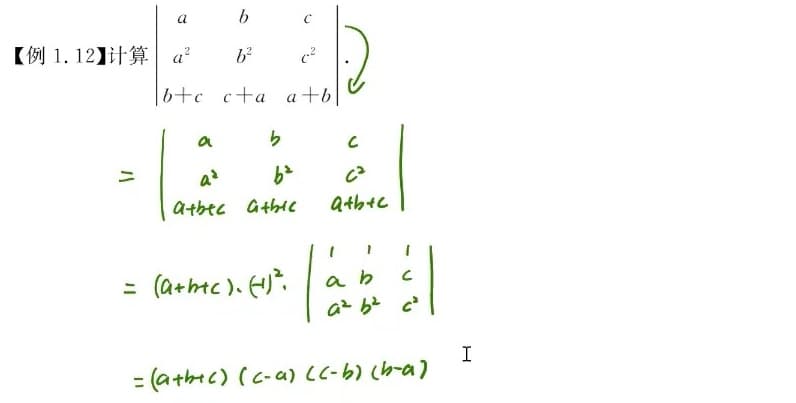 【例 1.12】计算 | a b c |
| a² b² c² | .
| b+c c+a a+b |
= | a b c |
| a² b² c² |
| a+b+c a+b+c a+b+c |
= (a+b+c)·(-1)²· | 1 1 1 |
| a b c |
| a² b² c² |
= (a+b+c) (c-a) (c-b) (b-a)